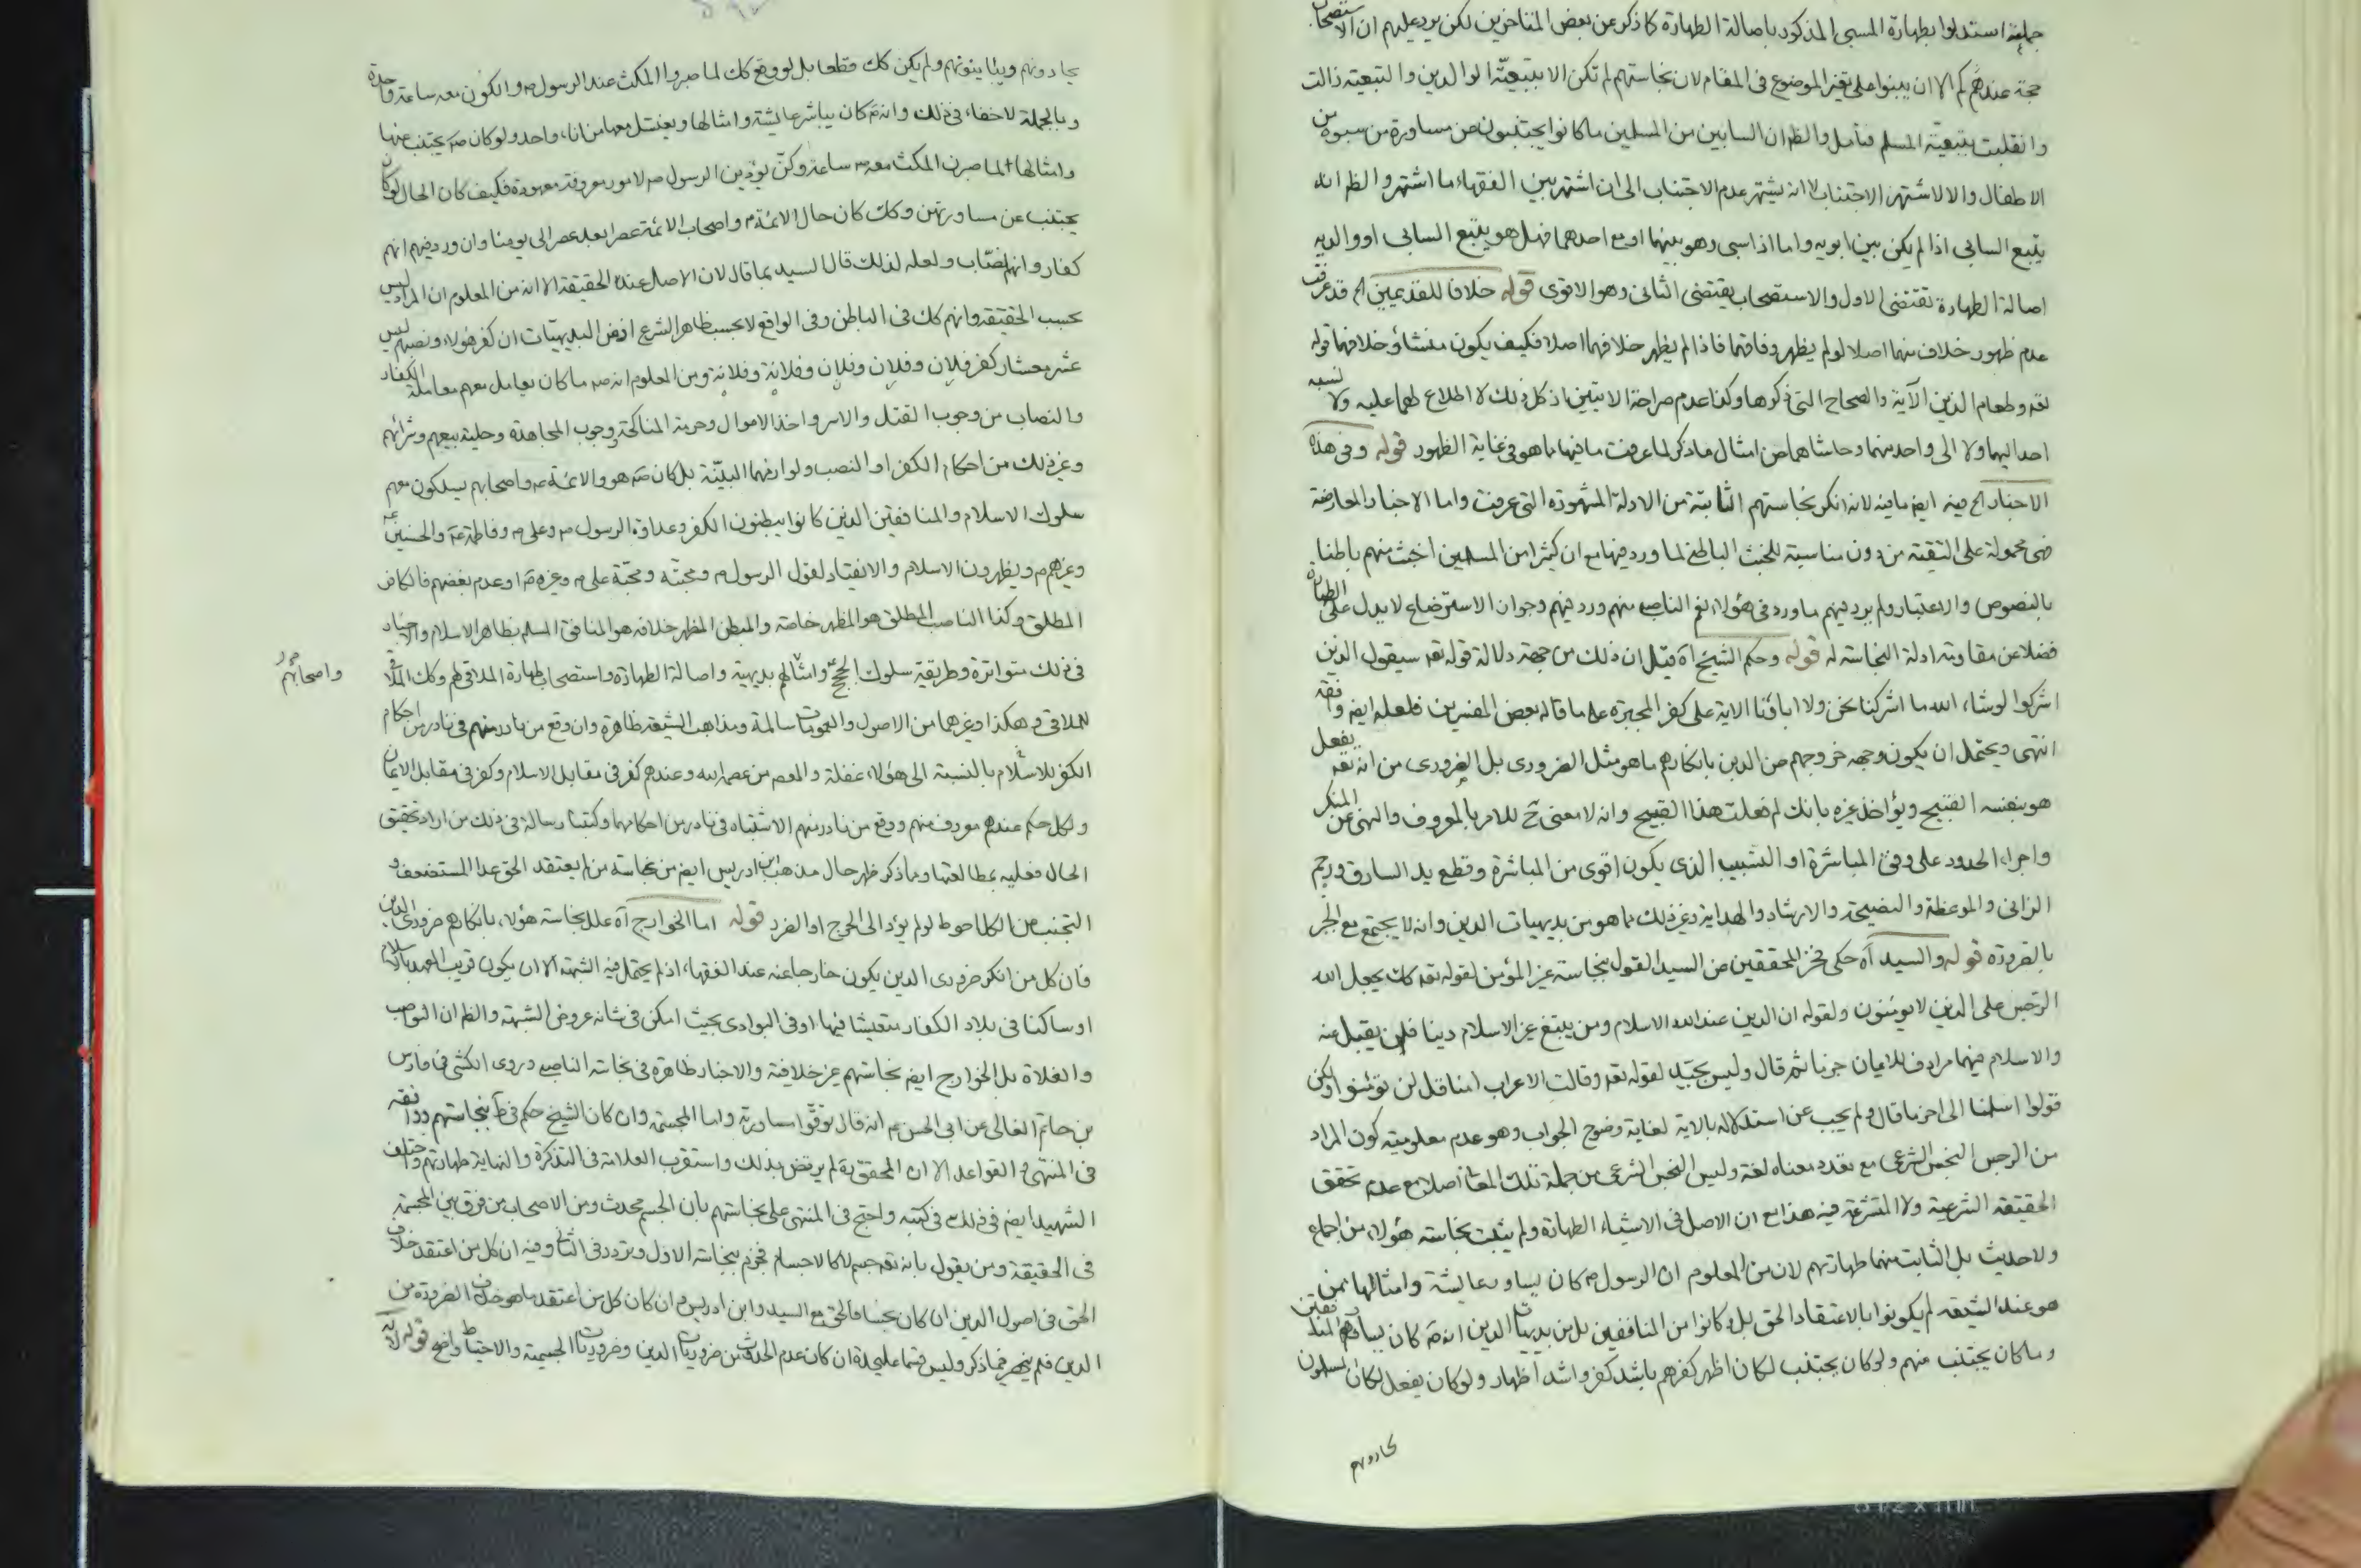 جملة استدلوا بطهارة المسبى المذكور باصالة الطهارة كما ذكر عن بعض المتاخرين لكن يرد عليهم ان الاستصحاب
حجة عندهم كم الا ان يبنوا على تغير الموضوع فى المقام لان نجاستهم لم تكن الا بتبعيته الوالدين والتبعية زالت
وانقلبت بتبعيّة المسلم فتامل والظ ان السابين من المسلمين ما كانوا يجتنبون عن مساورة من سبوه من
الاطفال والا لاشتهر الاجتناب لا انه يشتهر عدم الاجتناب الى ان اشتهر بين الفقهاء ما اشتهر والظ انه
يتبع السابى اذا لم يكن بين ابويه واما اذا سبى وهو بينهما او مع احدهما فهل هو يتبع السابى او والديه
اصالة الطهارة تقتضى الاول والاستصحاب يقتضى الثانى وهو الاقوى قوله خلافا للقديمين اه قد عرفت
عدم ظهور خلاف منهما اصلا لو لم يظهر وفاقهما فاذا لم يظهر خلافهما اصلا فكيف يكون منشاؤ خلافهما قوله
تعه وطعام الذين الآية والصحاح التى ذكرها وكذا عدم صراحة الايتين اذ كل ذلك لا اطلاع لهما عليه ولا نسبه
احد اليهما ولا الى واحد منهما وحاشاهما عن امثال ما ذكر لما عرفت ما فيها مما هو فى غاية الظهور قوله وفى هذه
الاخبار اه فيه ايضا ما فيه لانه انكر نجاستهم الثابتة من الادلة المشهورة التى عرفت واما الاخبار المعارضة
فهى محمولة على التقية من دون مناسبة للخبث الباطنى لما ورد فيها مع ان كثيرا من المسلمين اخبث منهم باطنا
بالنصوص والاعتبار ولم يرد فيهم ما ورد فى هؤلاء نعم الناصب منهم ورد فيهم وجواز الاسترضاع لا يدل على الطهارة
فضلا عن مقاومته ادلة النجاسة له قوله وحكم الشيخ اه قيل ان ذلك من جهة دلالة قوله تعه سيقول الذين
اشركوا لو شاء الله ما اشركنا نحن ولا اباؤنا الاية على كفر المجبرة على ما قاله بعض المفسرين فلعله ايضا وافقه
انتهى ويحتمل ان يكون وجهه خروجهم عن الدين بانكارهم ما هو مثل الضرورى بل الضرورى من انه تعه يفعل
هو بنفسه القبيح ويؤاخذ غيره بانك لم فعلت هذا القبيح وانه لا معنى ح للامر بالمعروف والنهى عن المنكر
واجراء الحدود على وفق المباشرة او التسبيب الذى يكون اقوى من المباشرة وقطع يد السارق ورجم
الزانى والموعظة والنصيحة والارشاد والهداية وغير ذلك مما هو من بديهيات الدين وانه لا يجتمع مع الجبر
بالضرورة قوله والسيد اه حكى فخر المحققين عن السيد القول بنجاسة غير المؤمن لقوله تعه كك يجعل الله
الرجس على الذين لا يؤمنون ولقوله ان الدين عند الله الاسلام ومن يبتغ غير الاسلام دينا فلن يقبل منه
والاسلام فيهما مرادف للايمان جزما ثم قال وليس بجيّد لقوله تعه وقالت الاعراب امنا قل لن تؤمنوا ولكن
قولوا اسلمنا الى اخر ما قال ولم يجب عن استدلاله بالاية لغاية وضوح الجواب وهو عدم معلومية كون المراد
من الرجس النجس الشرعى مع تعدد معناه لغة وليس النجس الشرعى من جملة تلك المعانى اصلا مع عدم تحقق
الحقيقة الشرعية ولا المتشرعة فيه هذا مع ان الاصل فى الاشياء الطهارة ولم يثبت نجاسة هؤلاء من اجماع
ولا حديث بل الثابت منهما طهارتهم لان من المعلوم ان الرسول ص كان يساور عايشة وامثالها ممن
هو عند الشيعة لم يكونوا بالاعتقاد الحق بل وكانوا من المنافقين بل من بديهيات الدين انه ص كان يساور المنافقين
وما كان يجتنب منهم ولو كان يجتنب لكان اظهر كفرهم باشد كفر واشد اظهار ولو كان يفعل لكان المسلمون
يحادونهم
يحادونهم ويباينونهم ولم يكن كك قطعا بل لو وقع كك لما صبروا المكث عند الرسول ص والكون معه ساعة واحدة
وبالجملة لا خفاء فى ذلك وانه ص كان يباشر عايشة وامثالها ويغتسل معها من اناء واحد ولو كان ص يجتنب عنها
وامثالها لما صبرن المكث معه ص ساعة وكنّ يؤذين الرسول ص لامور معروفة معهودة فكيف كان الحال لو كان
يجتنب عن مساورتهن وكك كان حال الائمة ع واصحاب الائمة عصرا بعد عصر الى يومنا وان ورد فيهم انهم
كفار وانهم نصّاب ولعله لذلك قال السيد بما قال لان الاصل عنده الحقيقة الا انه من المعلوم ان المراد ليس
بحسب الحقيقة وانهم كك فى الباطن وفى الواقع لا بحسب ظاهر الشرع اذ من البديهيات ان كفر هؤلاء ونصبهم ليس
عشر معشار كفر فلان وفلان وفلان وفلانة وفلانة ومن المعلوم انه ص ما كان يعامل معهم معاملة الكفار
والنصاب من وجوب القتل والاسر واخذ الاموال وحرمة المناكحة ووجوب المجاهدة وحلية بيعهم وشرائهم
وغير ذلك من احكام الكفر او النصب ولوازمهما البيّنة بل كان ص هو والائمة ع واصحابهم يسلكون معهم
سلوك الاسلام والمنافقين الذين كانوا يبطنون الكفر وعداوة الرسول ص وعلى ع وفاطمة ع والحسنين ع
وغيرهم ع ويظهرون الاسلام والانقياد لقول الرسول ص ومحبته ومحبّة على ع وغيره ع او عدم بغضهم فالكافر
المطلق وكذا الناصب المطلق هو المظهر خاصة والمبطن المظهر خلافه هو المنافق المسلم بظاهر الاسلام والاخبار
فى ذلك متواترة وطريقة سلوك الحجج ع وامثالهم بديهية واصالة الطهارة واستصحاب طهارة الملاقى لهم وكك الملاقى
واصحابهم
للملاقى وهكذا وغيرهما من الاصول والعمومات سالمة ومذاهب الشيعة ظاهرة وان وقع من نادر منهم فى نادر من احكام
الكفر للاسلام بالنسبة الى هؤلاء غفلة والمعصوم من عصمه الله وعندهم كفر فى مقابل الاسلام وكفر فى مقابل الايمان
ولكل حكم عندهم معروف منهم ووقع من نادر منهم الاشتباه فى نادر من احكامهما وكتبنا رسالة فى ذلك من اراد تحقيق
الحال فعليه بمطالعتها ومما ذكر ظهر حال مذهب ابن ادريس ايضا من نجاسة من لم يعتقد الحق عدا المستضعف و
التجنب عن الكل احوط لو لم يؤد الى الحرج او الضرر قوله اما الخوارج اه علل نجاسة هؤلاء بانكارهم ضرورى الدين
فان كل من انكر ضرورى الدين يكون خارجا عنه عند الفقهاء اذ لم يحتمل فيه الشبهة الا ان يكون قريب العهد بالاسلام
او ساكنا فى بلاد الكفار متعيشا فيها او فى البوادى بحيث امكن فى شانه عروض الشبهة والظ ان النواصب
والغلاة بل الخوارج ايضا نجاستهم غير خلافية والاخبار ظاهرة فى نجاسة الناصب وروى الكشى فى فارس
بن حاتم الغالى عن ابى الحسن ع انه قال توقّوا مساورته واما المجسمة وان كان الشيخ حكم فى ط بنجاستهم ووافقه
فى المنتهى والقواعد الا ان المحقق ره لم يرتض بذلك واستقرب العلامة فى التذكرة والنهاية طهارتهم واختلف
الشهيد ايضا فى ذلك فى كتبه واحتج فى المنتهى على نجاستهم بان الجسم محدث ومن الاصحاب من فرق بين المجسمة
فى الحقيقة ومن يقول بانه تعه جسم لا كالاجسام فجزم بنجاسة الاول وتردد فى الثانى وفيه ان كل من اعتقد خلاف
الحق فى اصول الدين ان كان نجسا فالحق مع السيد وابن ادريس وان كان كل من اعتقد ما هو خلاف الضرورة من
الدين فلم ينحصر فيما ذكر وليس قسما عليحدة ان كان عدم الحدوث من ضروريات الدين وضروريات الجسمية والاحتياط واضح قوله لانه